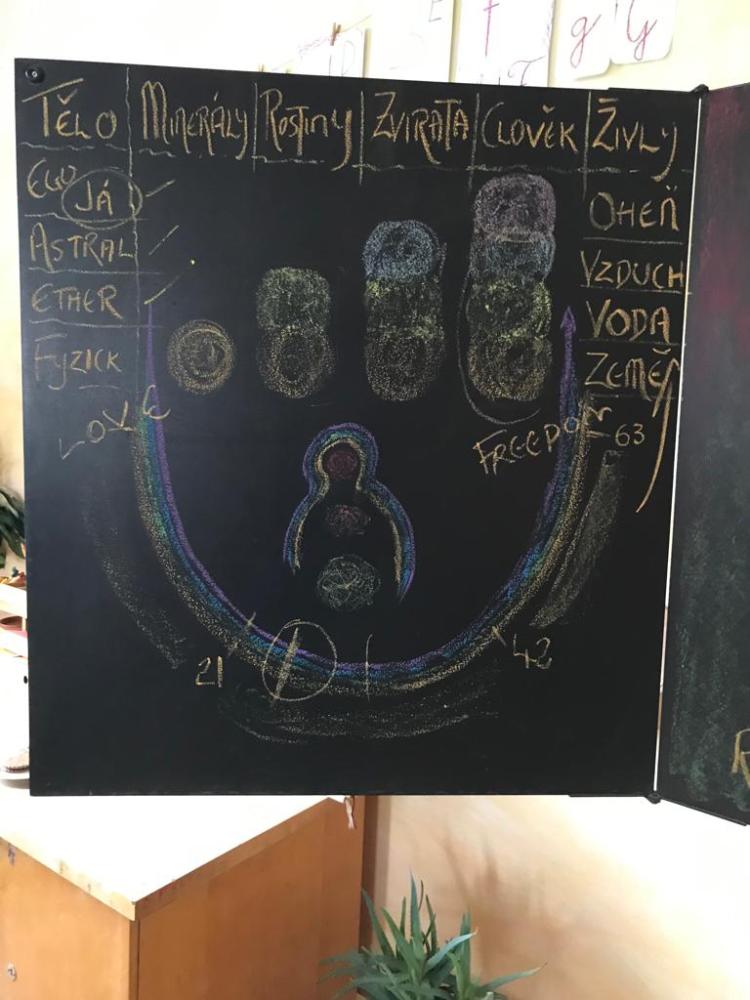 Tělo Minerály Rostiny Zvířata Člověk Živly
EGO JÁ OHEŇ
ASTRAL VZDUCH
ETHER VODA
Fyzick ZEMĚ
LOVE FREEDOM 63
21 42
g G